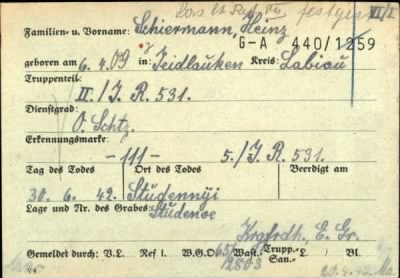 festgest. VII/I
Familien- u. Vorname: Schiermann, Heinz
G-A 440/1259
geboren am 6.4.09 in: Jeidlauken Kreis: Labiau
Truppenteil:
II./J.R. 531.
Dienstgrad:
O. Schtz.
Erkennungsmarke:
-111- 5./J.R. 531.
Tag des Todes Ort des Todes Beerdigt am
30. 6. 42. Studennyi
Lage und Nr. des Grabes: Studenoe
Krgfrdh. E. Gr.
Gemeldet durch: V.L. Ref I. W.G.O. Wast. Trupp. San.- L. Bl.